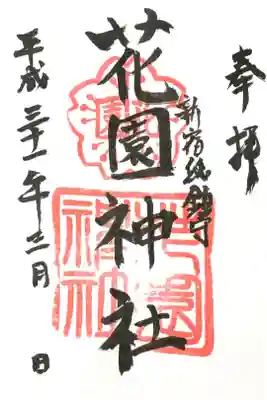 奉拝
新宿総鎮守
花園神社
平成三十一年三月 日
花園神社